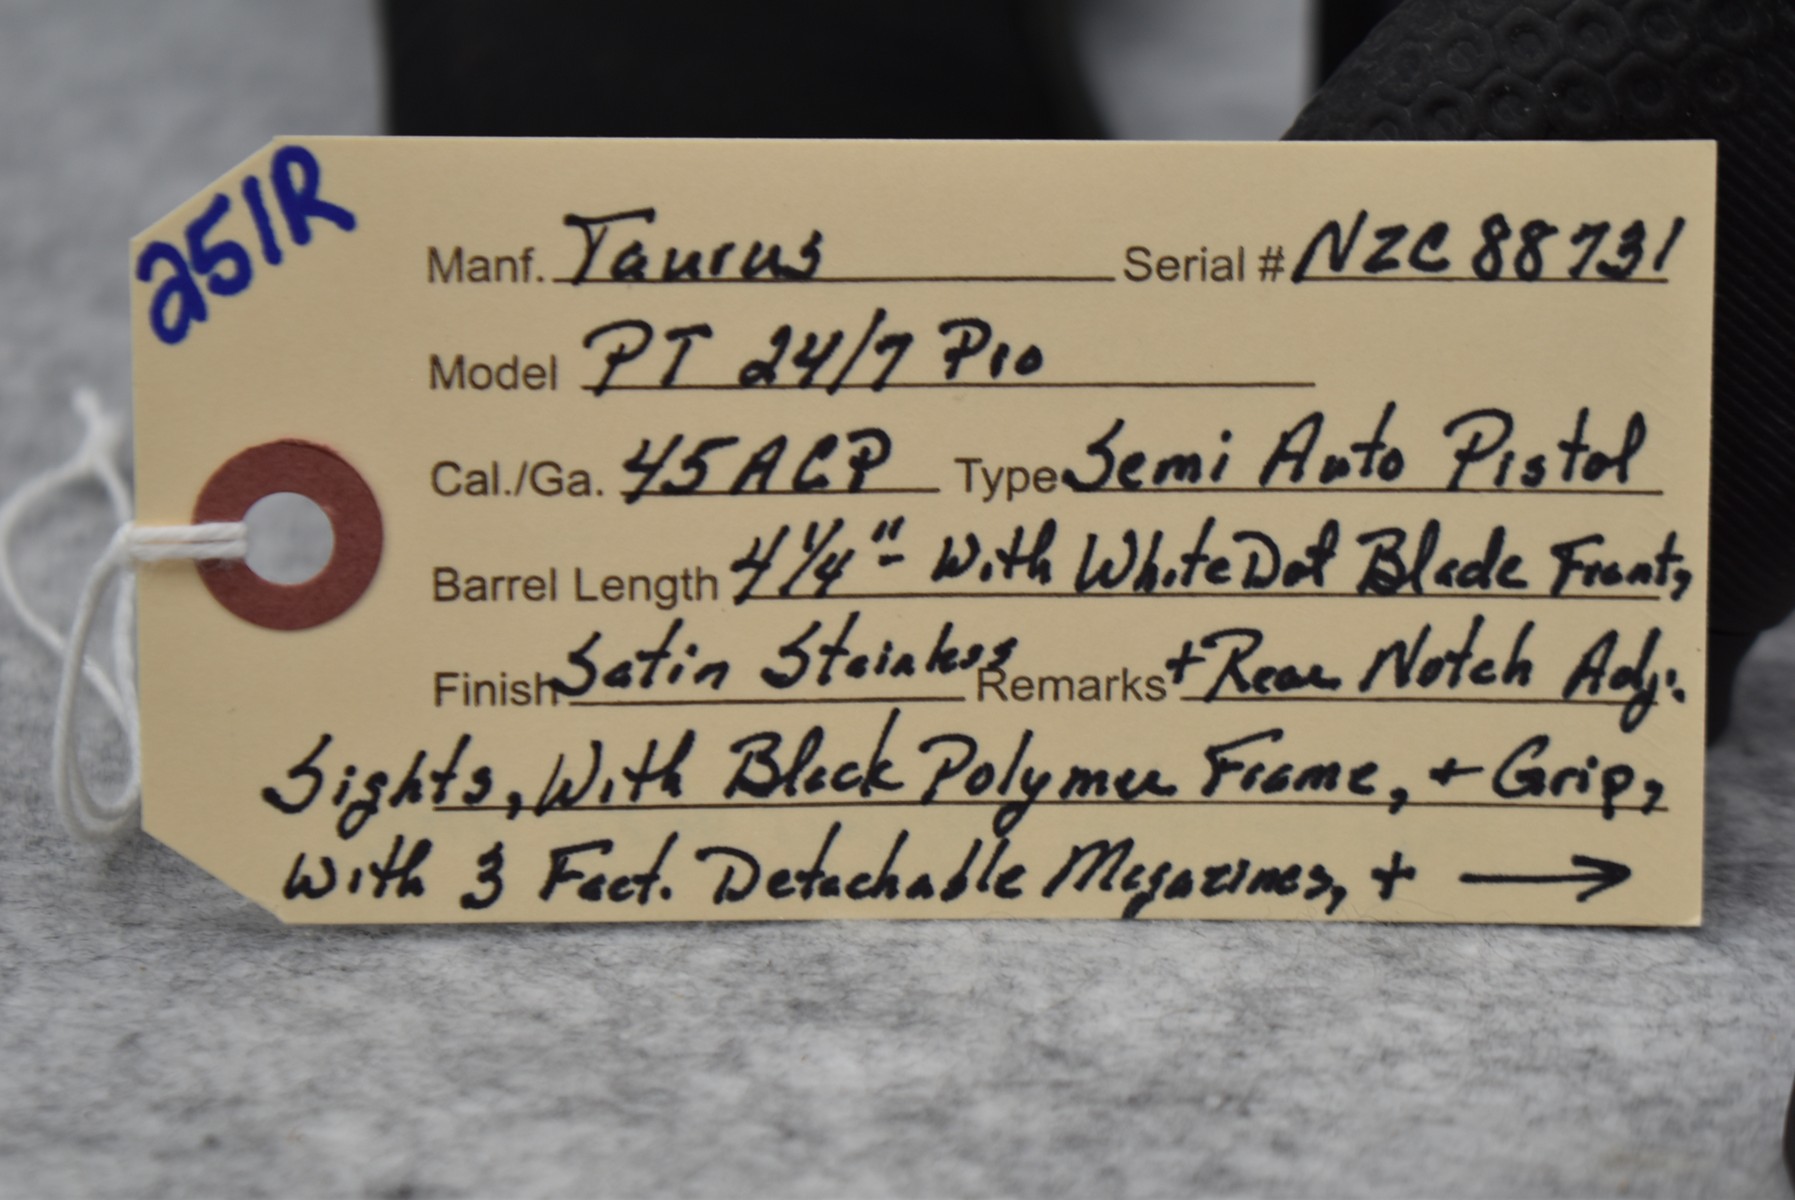 251R
Manf. Taurus Serial # NZC88731
Model PT 24/7 Pro
Cal./Ga. 45 ACP Type Semi Auto Pistol
Barrel Length 4 1/4" - With White Dot Blade Front,
Finish Satin Stainless Remarks + Rear Notch Adj.
Sights, With Black Polymer Frame, + Grip,
With 3 Fact. Detachable Magazines, + →